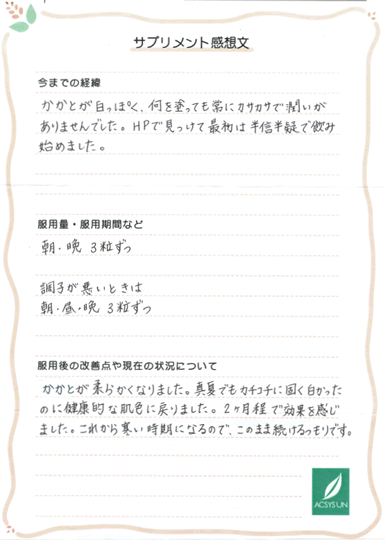 サプリメント感想文
今までの経緯
かかとが白っぽく、何を塗っても常にカサカサで潤いが
ありませんでした。HPで見つけて最初は半信半疑で飲み
始めました。
服用量・服用期間など
朝・晩 3粒ずつ
調子が悪いときは
朝・昼・晩 3粒ずつ
服用後の改善点や現在の状況について
かかとが柔らかくなりました。真夏でもカチコチに固く白かった
のに健康的な肌色に戻りました。2ヶ月程で効果を感じ
ました。これから寒い時期になるので、このまま続けるつもりです。
ACSYS UN